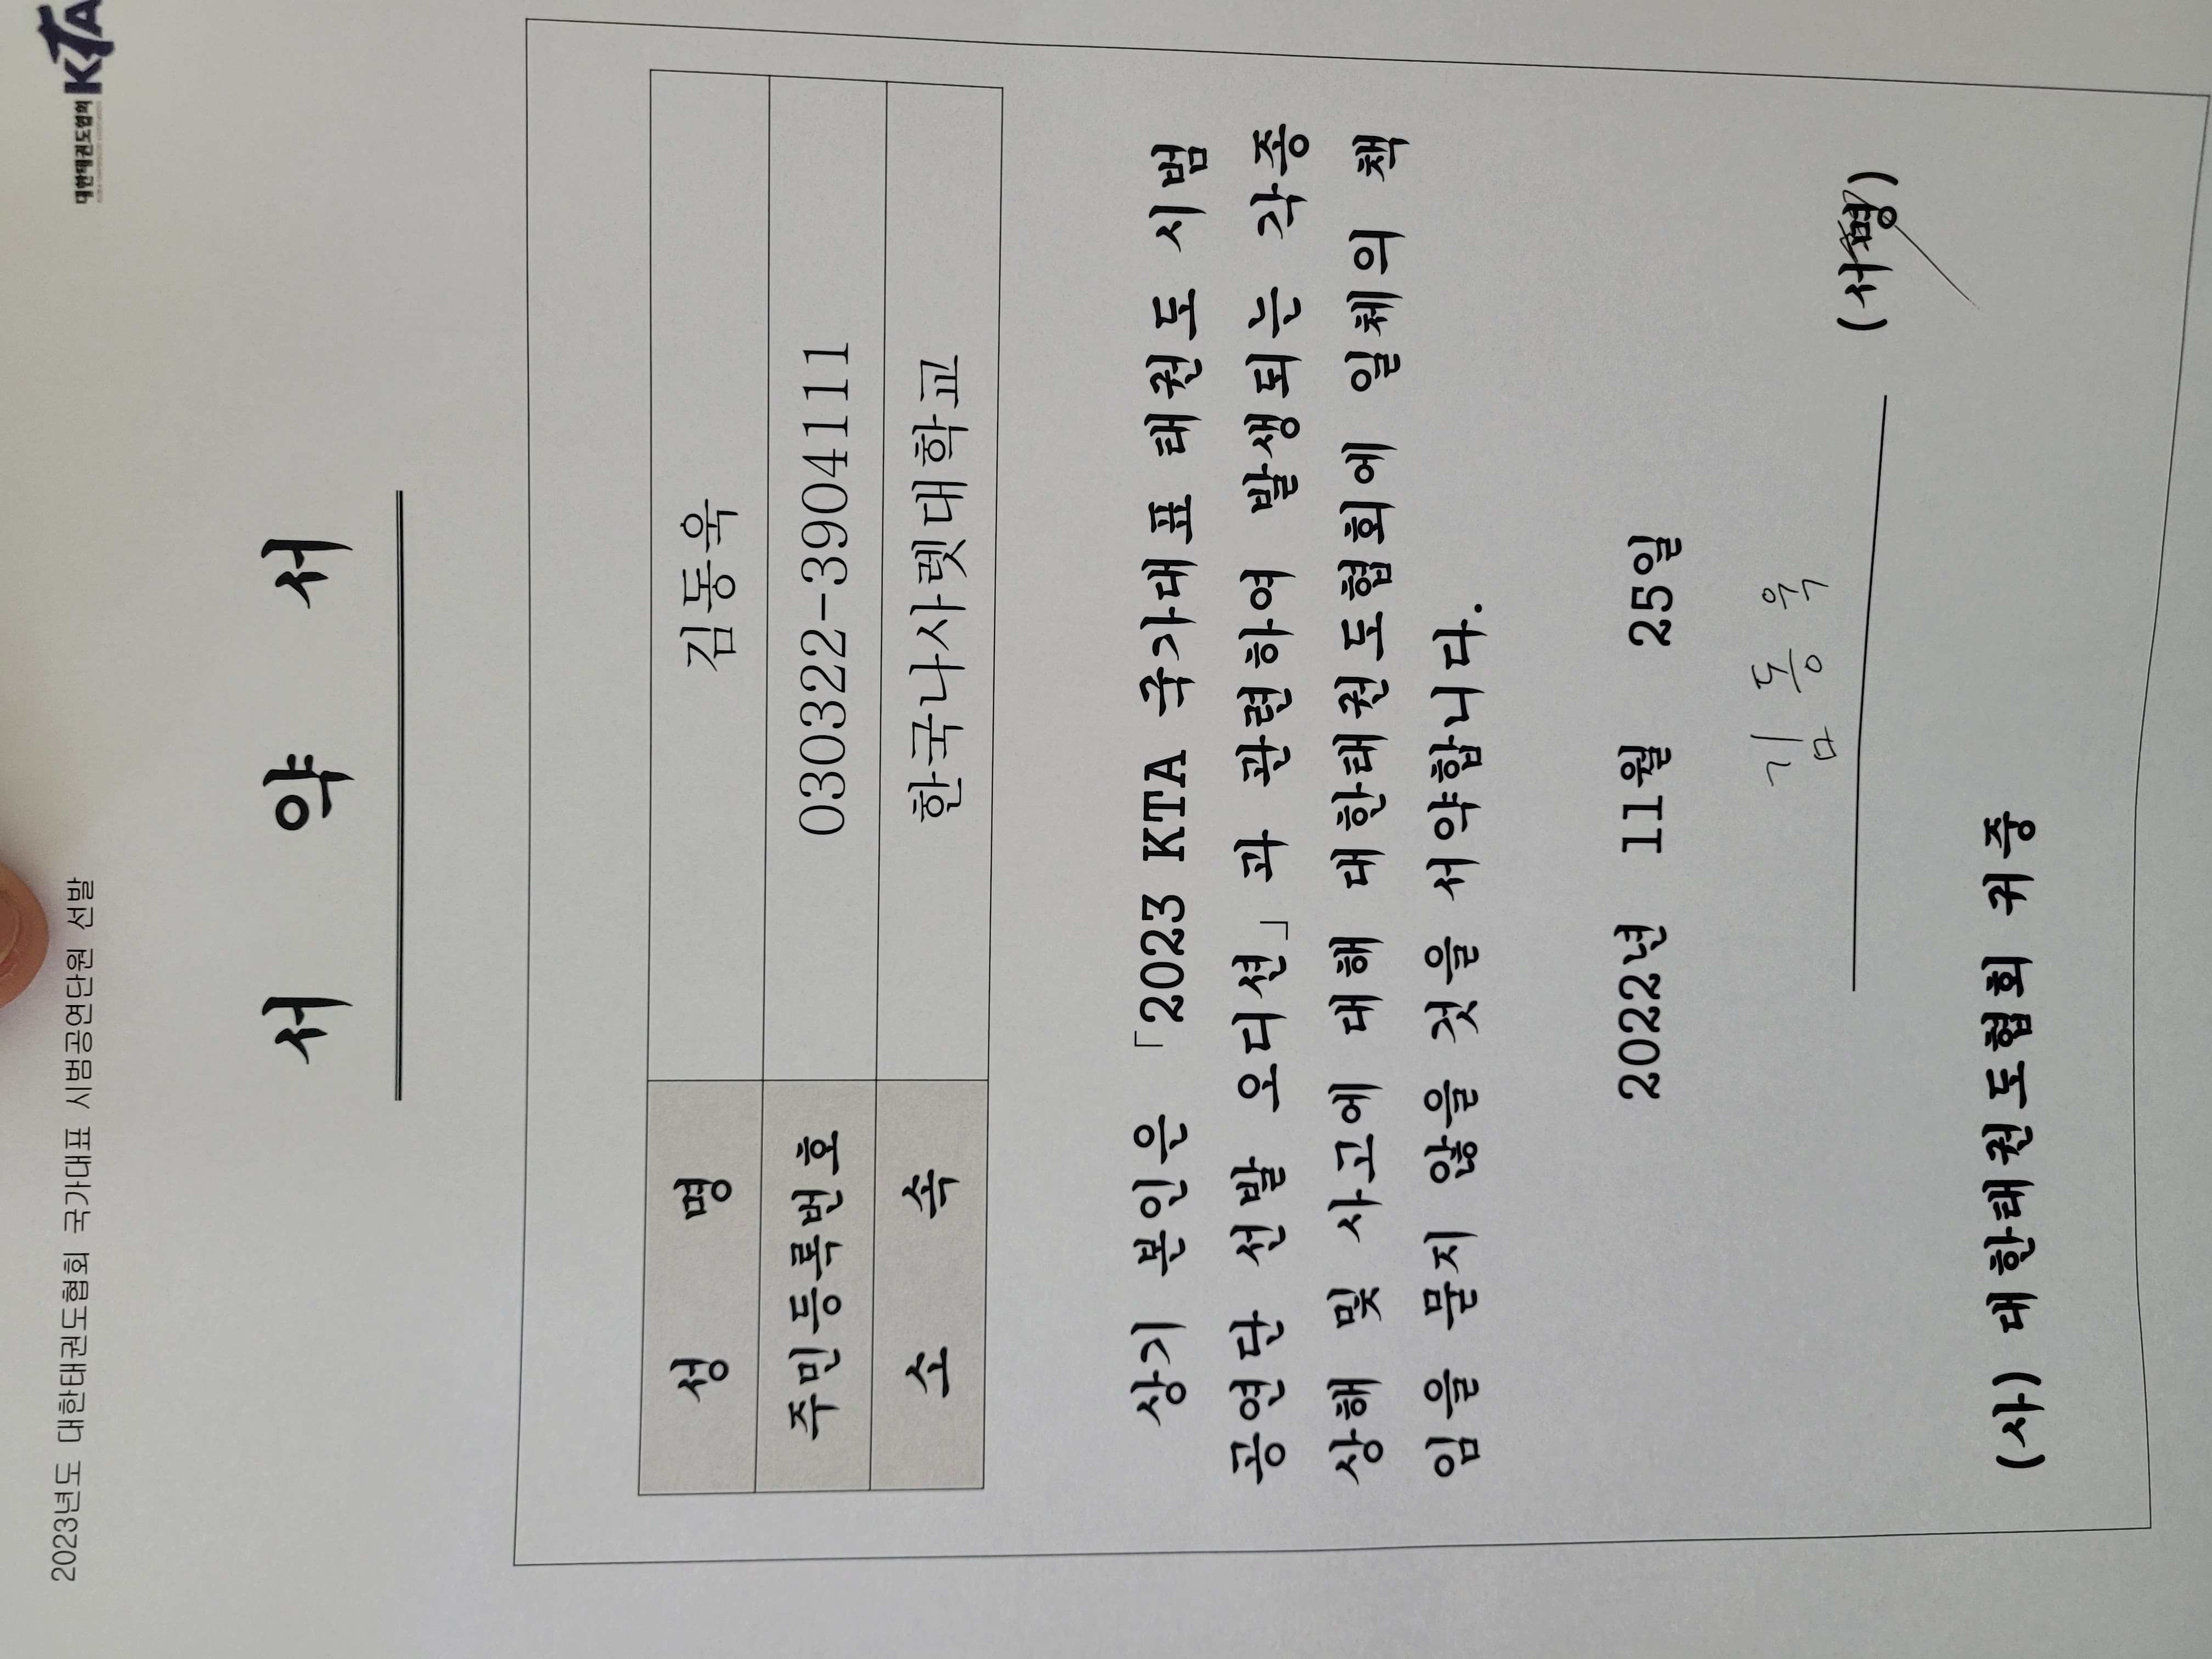 2023년도 대한태권도협회 국가대표 시범공연단원 선발
대한태권도협회 KTA
서 약 서
성 명 김동욱
주민등록번호 030322-3904111
소 속 한국나사렛대학교
상기 본인은 「2023 KTA 국가대표 태권도 시범
공연단 선발 오디션」과 관련하여 발생되는 각종
상해 및 사고에 대해 대한태권도협회에 일체의 책
임을 묻지 않을 것을 서약합니다.
2022년 11월 25일
김동욱 (서명)
(사) 대한태권도협회 귀중